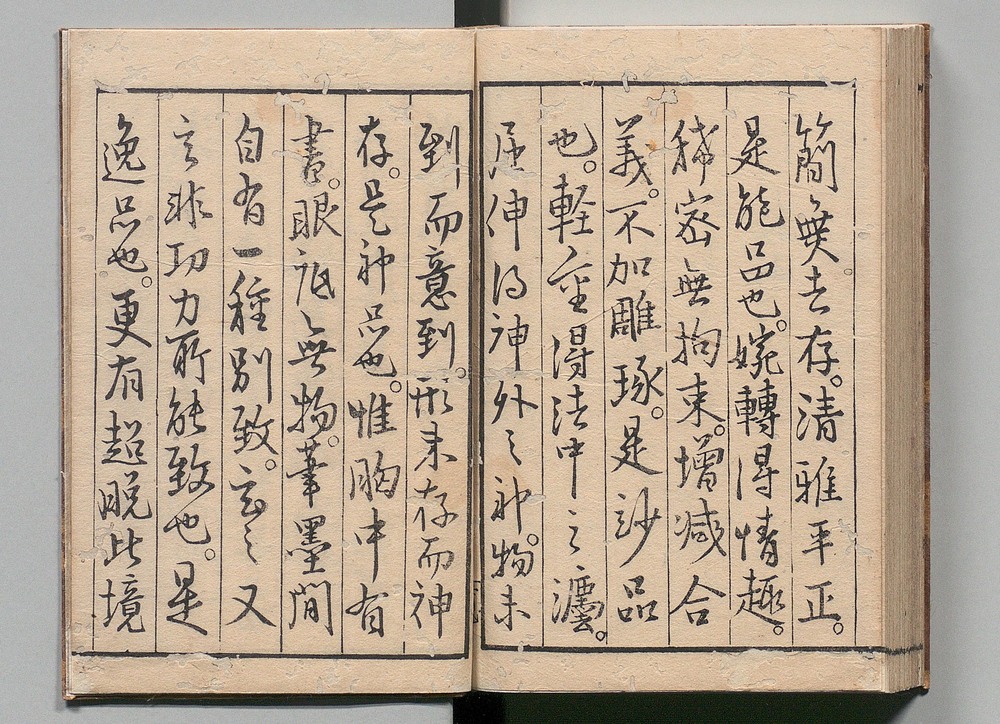 簡無去存。清雅平正。
是能品也。婉轉得情趣。
稀密無拘束。增減合
義。不加雕琢。是妙品
也。軽重得法中之
屈伸得神外之神。物未
到而意到。形未存而神
存。是神品也。惟胸中有
書。眼底無物。筆墨間
自有一種別致。言之又
言非功力所能致也。是
逸品也。更有超脱此境